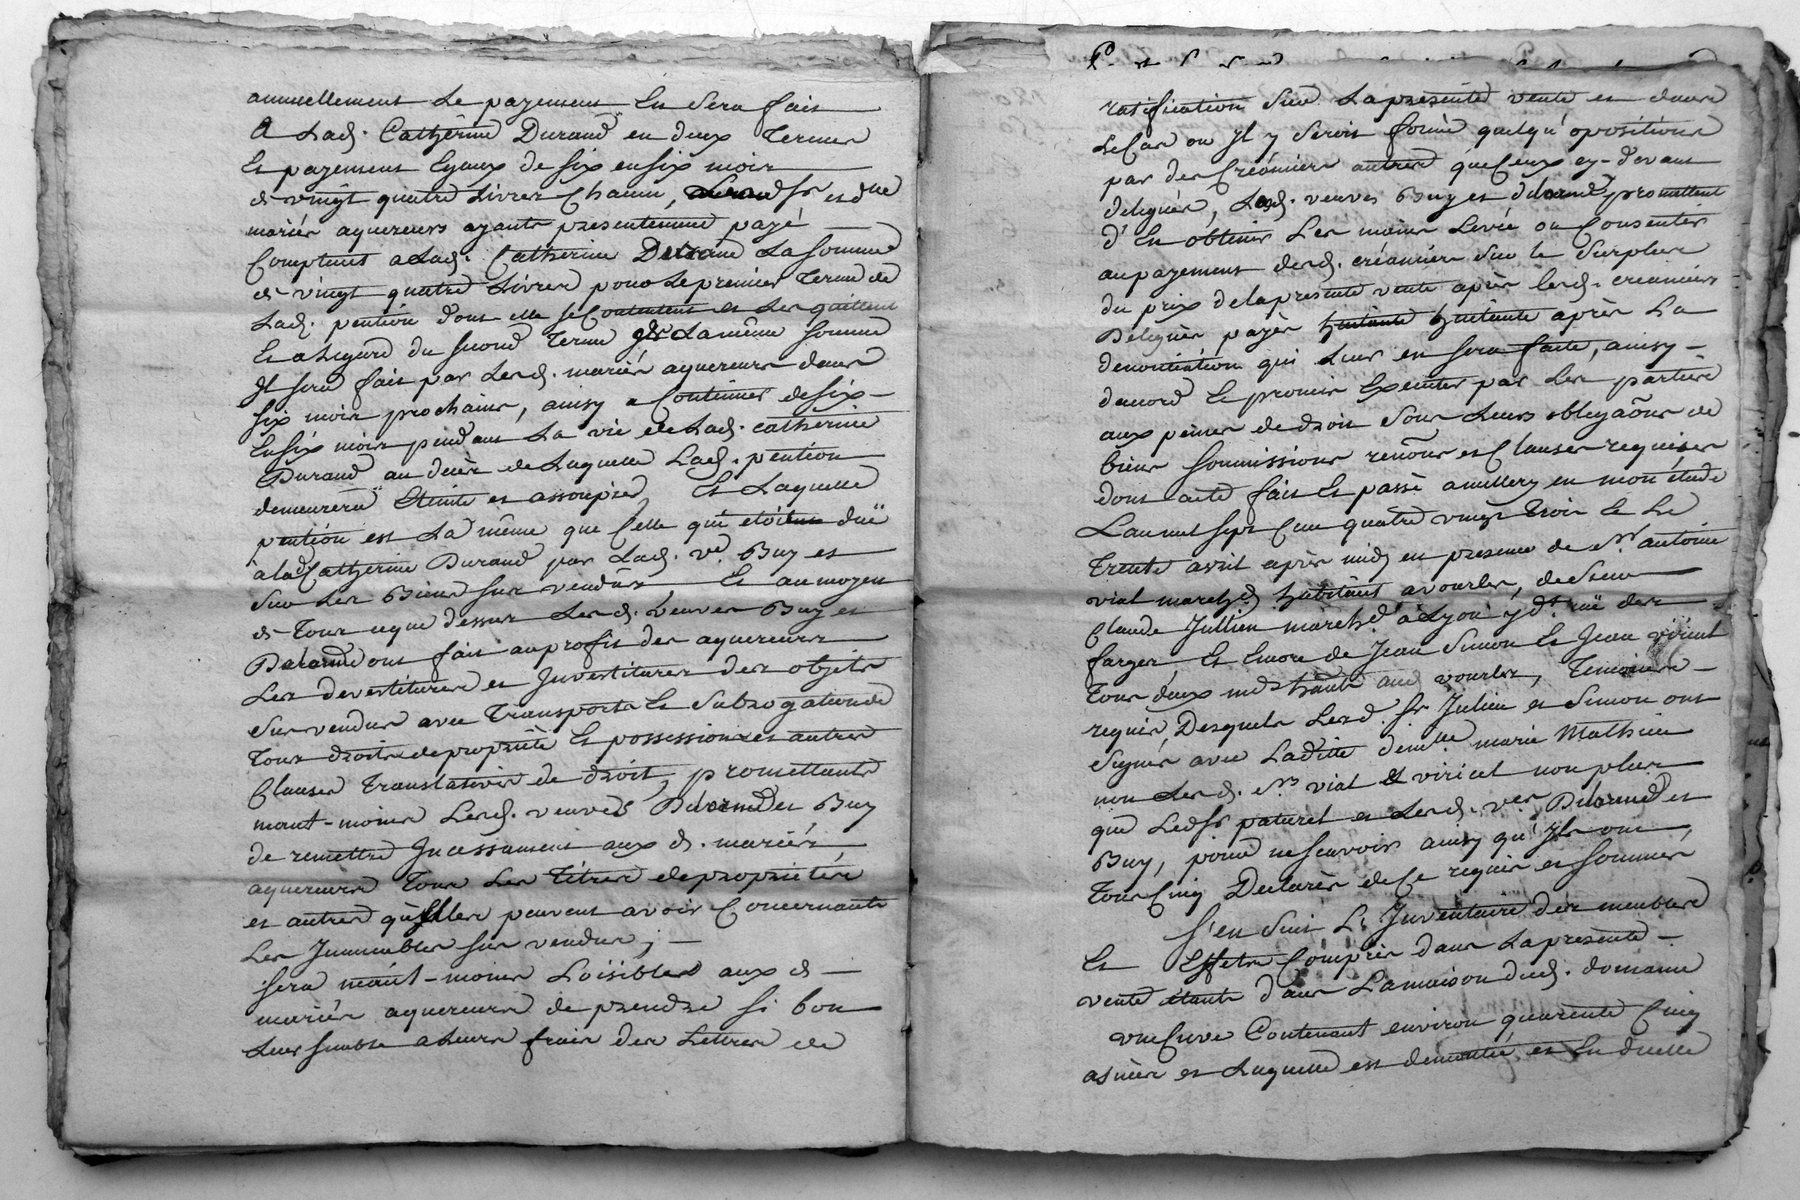 annuellement Le payement En Sera fait
A Lad. Catherine Durand en deux Termes
Et payement Egaux de Six en Six mois
de vingt quatre Livres Chacun, Sr et dlle
mariés aquereurs ayants presentement payé
Comptant a Lad. Catherine Durand La Somme
de vingt quatre Livres pour Le premier Terme de
Lad. pention dont elle se Contentent et Les quittent
Et a L'egard du Second Terme de La même Somme
Il Sera fait par Lesd. mariés aquereurs dans
Six mois prochains, ainsy a Continuer de Six
En Six mois pendant La vie de Lad. catherine
Durand au decès de Laquelle Lad. pention
demeurera Eteinte et assoupie, Et Laquelle
pention est La même que Celle qui etoit duë
à lad. Catherine Durand par Lad. ve. Buy et
Sur Les Biens Sus vendus, Et au moyen
de Tout ce que dessus Lesd. veuves Buy et
Durand ont fait au profit des aquereurs
Les devestitures et Investitures des objets
Sus vendus avec Transports Et Subrogation de
Tous droits de propriété Et possessions et autres
Clauses Translatives de droit, promettants
neant-moins Lesd. veuves Durand et Buy
de remettre Incessament aux d. mariés
aquereurs Tous Les Titres de propriétés
et autres qu'Elles peuvent avoir Concernants
Les Immeubles Sus vendus; —
Sera néant-moins Loisibles aux d. —
mariés aquereurs de prendre Si bon
Leur Semble a Leurs frais des Lettres de
ratification Sur La presente vente et dans
Le Cas ou Il y Seroit formé quelqu'opositions
par des Créanciers autres que Ceux cy-devant
delegués, Lesd. veuves Buy et durand promettent
d'En obtenir Les mains Levée ou Consentir
au payement desd. créanciers Sur le Surplus
du prix de La presente vente après Lesd. creanciers
Delegués payés huitaine après La
denontiation qui Leur en Sera faite, ainsy —
d'acord Et promis Executer par Les parties
aux peines de droit Sous Leurs obligaõns de
biens Soumissions renõns et Clauses requises
dont acte fait Et passé a millery en mon étude
L'an mil Sept Cent quatre vingt Trois Et Le
Trente avril après midy en presence de Mr. antoine
vial marchd. habitant a vourles, de Sieur
Claude Jullien marchd. à Lyon y dt. ruë des
farges, Et Encore de Jean Simon Et Jean viricel
Tous deux vourles, Temoins —
requis, Desquels Lesd. Sr. Julien et Simon ont
Signés avec Laditte demlle. marie Mathieu
non Lesd. Mr. vial Et viricel non plus
que Ledsr. paturel et Lesd. ves. Durand et
Buy, pour ne Scavoir ainsy qu'Ils ont
Tous Cinq Declarés de Ce requis et Sommés
S'en Suit L'Inventaire des meubles
Et Effets Compris dans La presente —
vente étants dans La maison dud. domaine
vne Cuve Contenant environ quarente Cinq
asnées et Laquelle est demontée, et En duelle